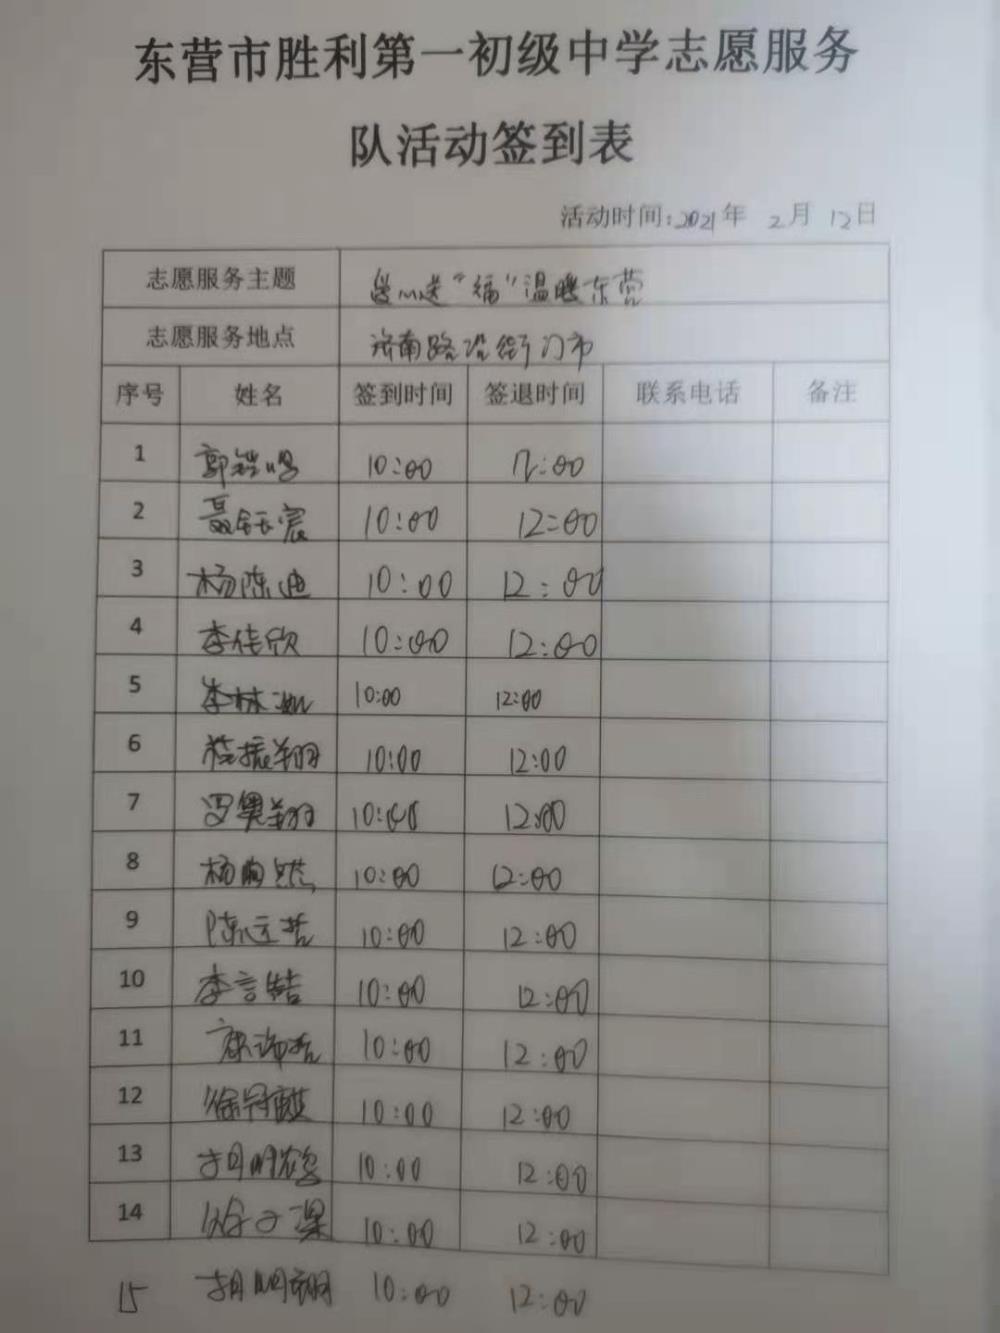 东营市胜利第一初级中学志愿服务
队活动签到表
活动时间:2021年 2月 12日
志愿服务主题 送"福"温暖东营
志愿服务地点 济南路沿街门市
序号 姓名 签到时间 签退时间 联系电话 备注
1 郭 10:00 12:00
2 聂钰宸 10:00 12:00
3 杨陈迪 10:00 12:00
4 李佳欣 10:00 12:00
5 李林 10:00 12:00
6 振翔 10:00 12:00
7 罗翔 10:00 12:00
8 杨然 10:00 12:00
9 陈立哲 10:00 12:00
10 李言喆 10:00 12:00
11 10:00 12:00
12 徐麒 10:00 12:00
13 胡明 10:00 12:00
14 徐子 10:00 12:00
15 胡明翔 10:00 12:00